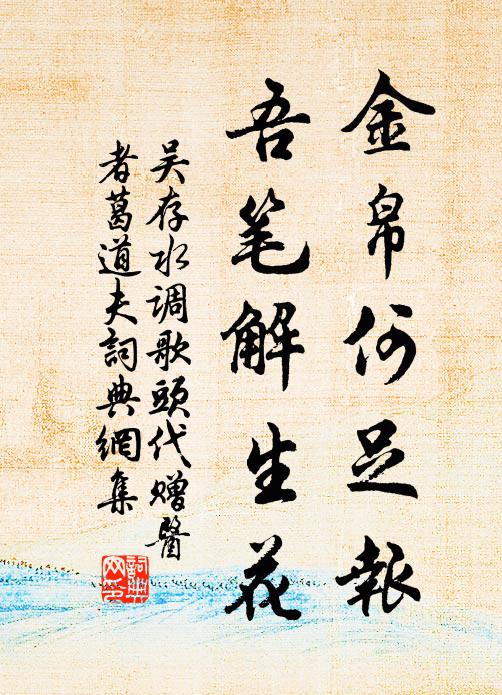 金帛何足報
吾笔解生花
吴存水调歌頭代赠醫
者葛道夫詞典網集